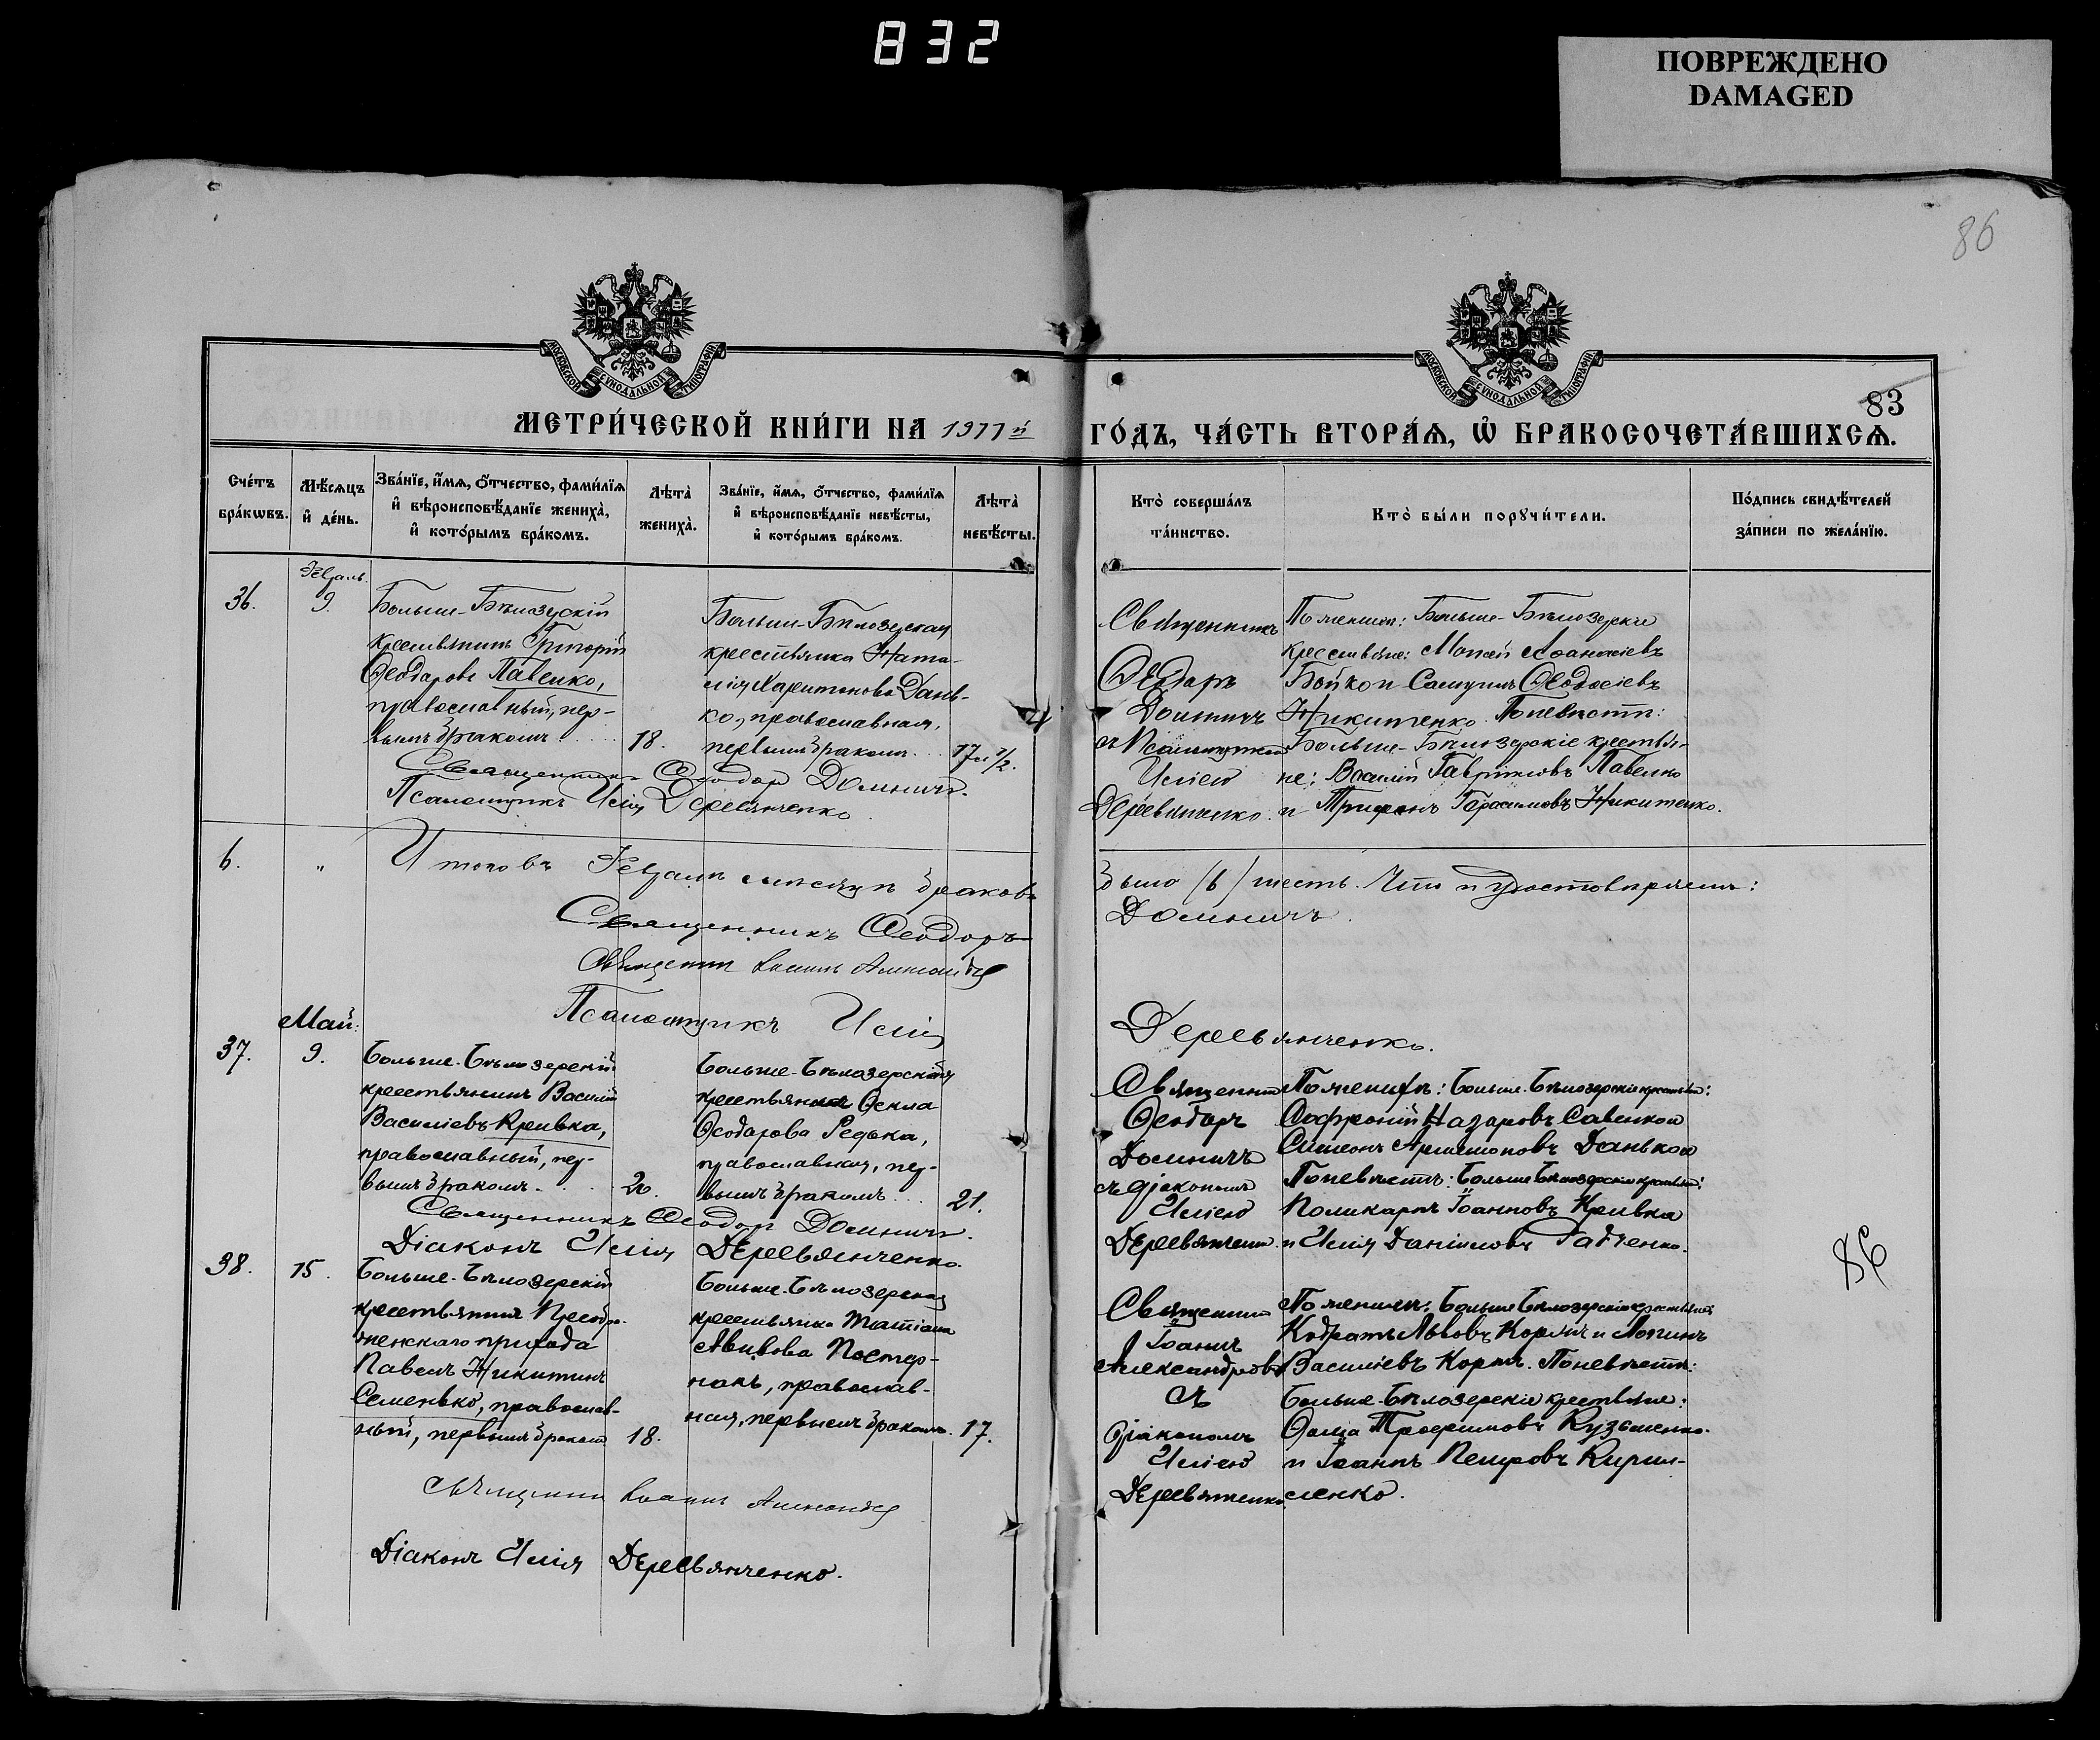 832
ПОВРЕЖДЕНО
DAMAGED
86
МОСКОВСКОЙ СѴНОДАЛЬНОЙ ТИПОГРАФІИ
МОСКОВСКОЙ СѴНОДАЛЬНОЙ ТИПОГРАФІИ
83
МЕТРИ́ЧЕСКОЙ КНИ́ГИ НА 1911 й
ГО́ДЪ, ЧА́СТЬ ВТОРА́Ѧ, Ѡ҆ БРАКОСОЧЕТА́ВШИХСѦ.
Сче́тъ бра́кѡвъ.
Мѣ́сяцъ и҆ де́нь.
Зва́нїе, и҆́мѧ, ѻ҆́тчество, фами́лїѧ и҆ вѣроисповѣ́данїе жениха̀, и҆ кото́рымъ бра́комъ.
Лѣ́та̀ жениха̀.
Зва́нїе, и҆́мѧ, ѻ҆́тчество, фами́лїѧ и҆ вѣроисповѣ́данїе невѣ́сты, и҆ кото́рымъ бра́комъ.
Лѣ́та̀ невѣ́сты.
Кто̀ соверша́лъ та́инство.
Кто̀ бы́ли порꙋчи́тели.
По́дпись свидѣ́телей за́писи по жела́нїю.
36.
Февраль.
9.
Больше-Бѣлозерскій
крестьянинъ Григорій
Ѳеодоровъ Павенко,
православный, пер-
вымъ бракомъ
18.
Больше-Бѣлозерская
крестьянка Ната-
лія Харитонова Дань-
ко, православная,
первымъ бракомъ
17 и 1/2.
Священникъ Ѳеодоръ Доминичъ.
Псаломщикъ Илія Деревянченко
Священникъ
Ѳеодоръ
Доминичъ
съ Псаломщикомъ
Иліею
Деревянченко.
По женихѣ: Больше-Бѣлозерскіе
крестьяне: Моисей Аѳанасіевъ
Бойко и Самуилъ Ѳеодосіевъ
Никитенко. По невѣстѣ:
Больше-Бѣлозерскіе крестья-
не: Василій Гавріиловъ Павенко
и Трифонъ Герасимовъ Никитенко.
6. " Итого въ Февралѣ мѣсяцѣ браковъ
было (6) шесть. Что и удостовѣряемъ:
Священникъ Ѳеодоръ Доминичъ.
Священникъ Іоаннъ Александровъ
Псаломщикъ Илія Деревянченко.
Май:
37.
9.
Больше-Бѣлозерскій
крестьянинъ Василій
Василіевъ Кривка,
православный, пер-
вымъ бракомъ
20.
Больше-Бѣлозерская
крестьянка Ѳекла
Ѳеодорова Редька,
православная, пер-
вымъ бракомъ
21.
Священникъ Ѳеодоръ Доминичъ.
Діаконъ Илія Деревянченко.
Священникъ
Ѳеодоръ
Доминичъ
съ діакономъ
Иліею
Деревянченко.
По женихѣ: Больше-Бѣлозерскіе крестьяне:
Софроній Назаровъ Савенко и
Симеонъ Данько и
По невѣстѣ: Больше Бѣлозерскіе крестьяне:
Поликарпъ Іоанновъ Кривка
и Илія Даніиловъ Радченко.
86
38.
15.
Больше-Бѣлозерскій
крестьянинъ
прихода
Павелъ Никитинъ
Семенько, православ-
ный, первымъ бракомъ
18.
Больше-Бѣлозерская
крестьянка Татіана
Авивова Постер-
накъ, православ-
ная, первымъ бракомъ.
17.
Священникъ
Іоаннъ
Александровъ
съ
діакономъ
Иліею
Деревянченко
По женихѣ: Больше Бѣлозерскіе крестьяне:
Кодратъ Львовъ Коржъ и Логинъ
Василіевъ Коржъ. По невѣстѣ:
Больше-Бѣлозерскіе крестьяне:
Ѳома Трофимовъ Кузьменко
и Іоаннъ Петровъ Кирил-
ленко.
Священникъ Іоаннъ Александровъ
Діаконъ Илія Деревянченко.